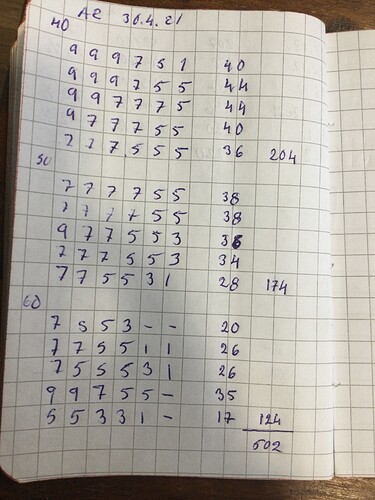 30.4.21
40
9 9 9 7 5 1 40
9 9 9 7 5 5 44
9 9 7 7 7 5 44
9 7 7 7 5 5 40
7 7 7 5 5 5 36 204
50
7 7 7 7 5 5 38
7 7 7 7 5 5 38
9 7 7 5 5 3 36
7 7 7 5 5 3 34
7 7 5 5 3 1 28 174
60
7 5 5 3 - - 20
7 7 5 5 1 1 26
7 5 5 5 3 1 26
9 9 7 5 5 - 35
5 5 3 3 1 - 17 124
502